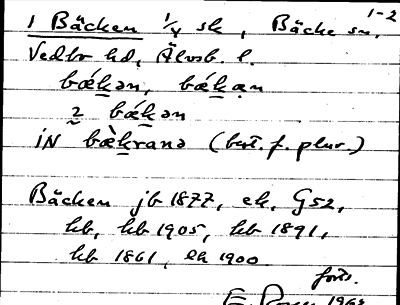 1-2
1 Bäcken 1/4 sk, Bäcke sn,
Vedbo hd, Älvsb. l.
bǽk̲ən, bǽk̲ạn
2 bǽk̲ən
IN bæ̀k̲ranə (best. f. plur.)
Bäcken jb 1877, ek, G52,
hb, hb 1905, hb 1891,
hb 1861, ek 1900
forts.
1968